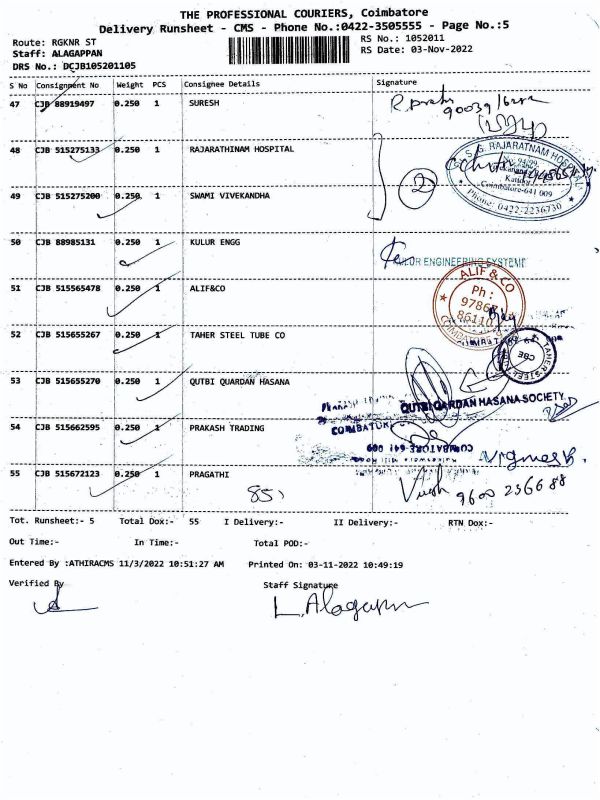 THE PROFESSIONAL COURIERS, Coimbatore
Delivery Runsheet - CMS - Phone No.:0422-3505555 - Page No.:5
Route: RGKNR ST
RS No.: 1052011
Staff: ALAGAPPAN
RS Date: 03-Nov-2022
DRS No.: DCJB105201105
S No Consignment No Weight PCS Consignee Details Signature
47 CJB 88919497 0.250 1 SURESH
48 CJB 515275133 0.250 1 RAJARATHINAM HOSPITAL
S.G. RAJARATNAM HOSPITAL
Coimbatore-641 009
Phone: 0422-2236730
2
49 CJB 515275200 0.250 1 SWAMI VIVEKANDHA
50 CJB 88985131 0.250 1 KULUR ENGG
ENGINEERING SYSTEMS
51 CJB 515565478 0.250 1 ALIF&CO
ALIF & CO
Ph :
97867
86110
52 CJB 515655267 0.250 1 TAHER STEEL TUBE CO
TAHER STEEL
CBE
53 CJB 515655270 0.250 1 QUTBI QUARDAN HASANA
QUTBI QARDAN HASANA SOCIETY
54 CJB 515662595 0.250 1 PRAKASH TRADING
COIMBATORE-641 009
55 CJB 515672123 0.250 1 PRAGATHI
9600 256688
Tot. Runsheet:- 5 Total Dox:- 55 I Delivery:- II Delivery:- RTN Dox:-
Out Time:- In Time:- Total POD:-
Entered By :ATHIRACMS 11/3/2022 10:51:27 AM Printed On: 03-11-2022 10:49:19
Verified By Staff Signature
L. Alagappan